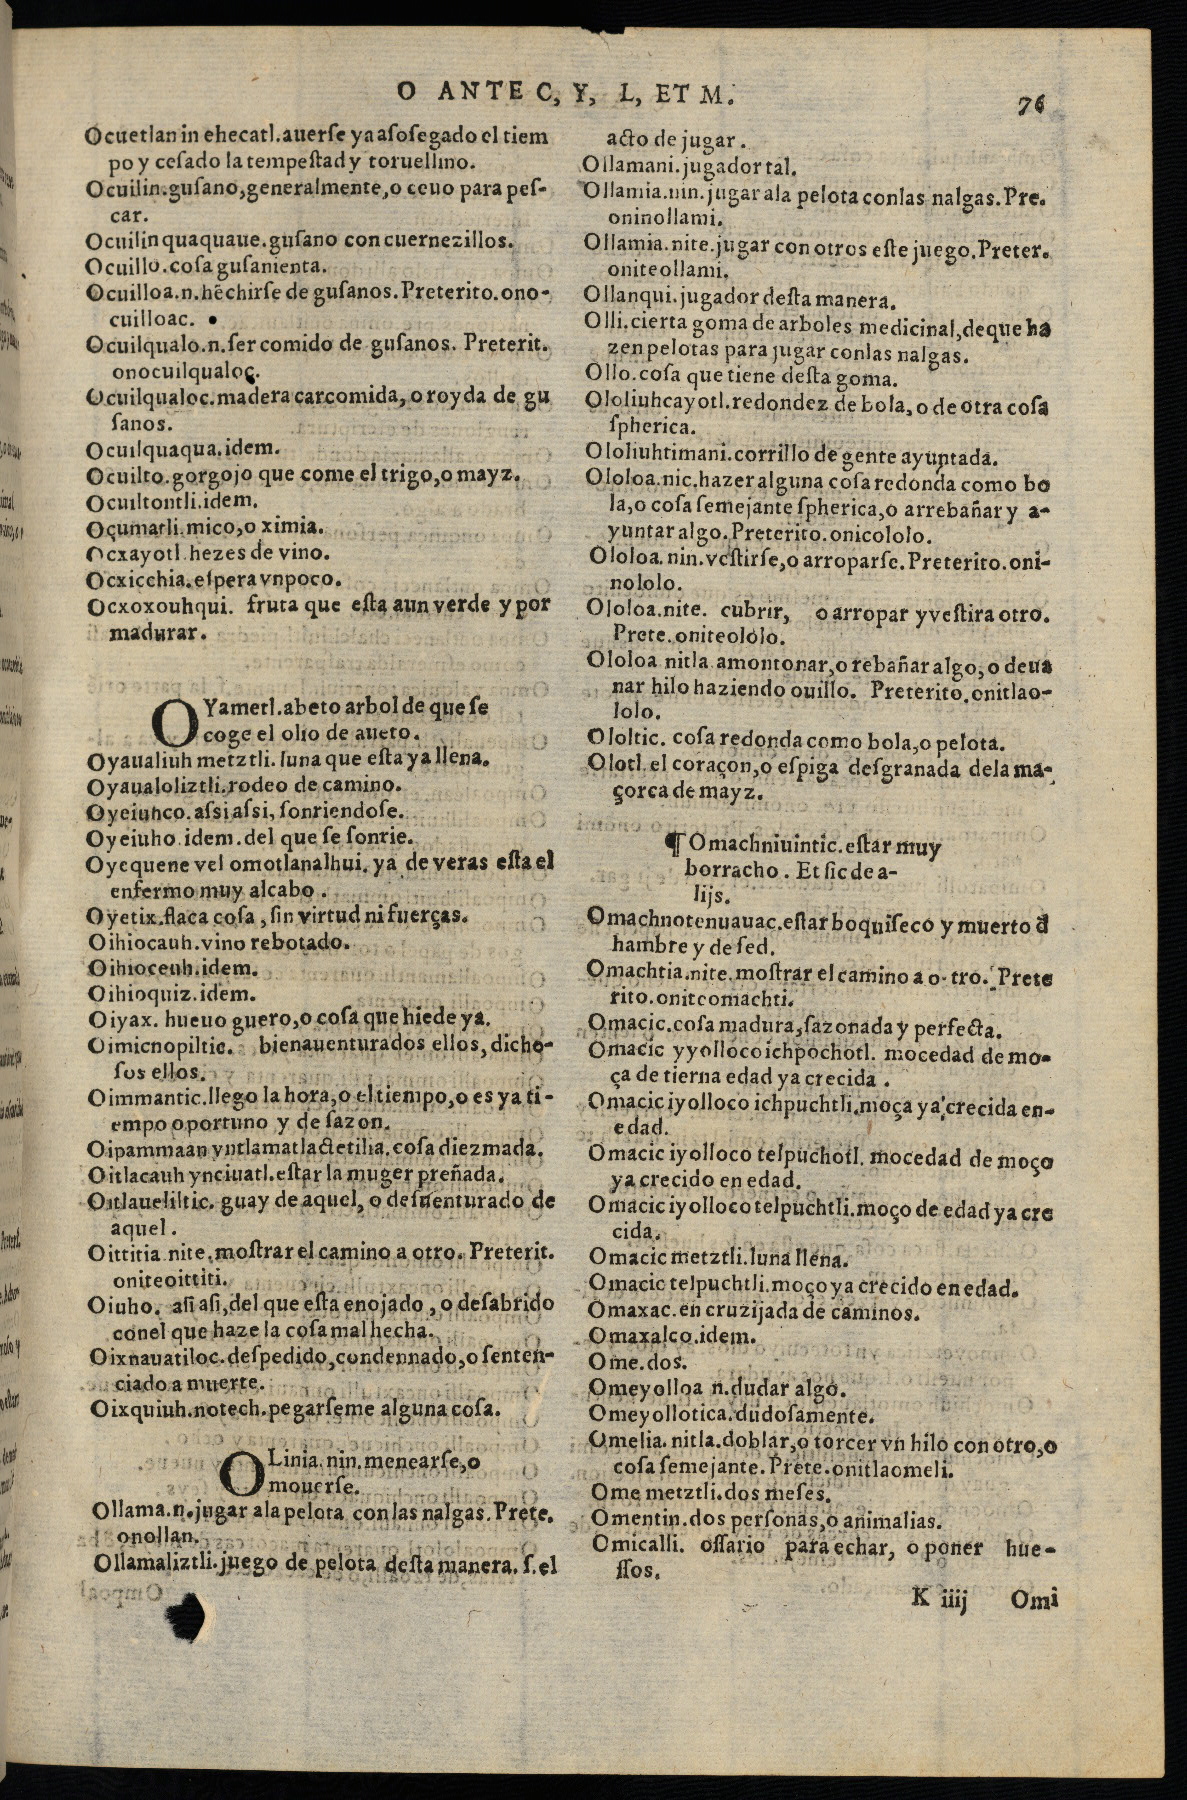 O ANTE C, Y, L, ET M.
76
Ocuetlan in ehecatl. auerſe ya aſoſegado el tiem
po y ceſado la tempeſtad y toruellino.
Ocuilin. guſano, generalmente, o ceuo para peſ-
car.
Ocuilin quaquaue. guſano con cuernezillos.
Ocuillo. coſa guſanienta.
Ocuilloa. n. hẽchirſe de guſanos. Preterito. ono-
cuilloac.
Ocuilqualo. n. ſer comido de guſanos. Preterit.
onocuilqualoc.
Ocuilqualoc. madera carcomida, o royda de gu
ſanos.
Ocuilquaqua. idem.
Ocuilto. gorgojo que come el trigo, o mayz.
Ocuiltontli. idem.
Oçumatli. mico, o ximia.
Ocxayotl. hezes de vino.
Ocxicchia. eſpera vn poco.
Ocxoxouhqui. fruta que eſta aun verde y por
madurar.
OYametl. abeto arbol de que ſe
coge el olio de aueto.
Oyaualiuh metztli. luna que eſta ya llena.
Oyaualoliztli. rodeo de camino.
Oyeiuhco. aſsi aſsi, ſonriendoſe.
Oyeiuho. idem. del que ſe ſonrie.
Oyequene vel omotlanalhui. ya de veras eſta el
enfermo muy al cabo.
Oyetix. flaca coſa, ſin virtud ni fuerças.
Oihiocauh. vino rebotado.
Oihioceuh. idem.
Oihioquiz. idem.
Oiyax. hueuo guero, o coſa que hiede ya.
Oimicnopiltic. bienauenturados ellos, dicho-
ſos ellos.
Oimmantic. llego la hora, o el tiempo, o es ya ti-
empo oportuno y de ſazon.
Oipammaan yntlamatlactetilia. coſa diezmada.
Oitlacauh ynciuatl. eſtar la muger preñada.
Oitlaueliltic. guay de aquel, o deſuenturado de
aquel.
Oittitia. nite. moſtrar el camino a otro. Preterit.
oniteoittiti.
Oiuho. aſi aſi, del que eſta enojado, o deſabrido
con el que haze la coſa mal hecha.
Oixnauatiloc. deſpedido, condennado, o ſenten-
ciado a muerte.
Oixquiuh. notech. pegarſeme alguna coſa.
OLinia. nin. menearſe, o
mouerſe.
Ollama. n. jugar ala pelota con las nalgas. Prete.
onollan.
Ollamaliztli. juego de pelota deſta manera. ſ. el
acto de jugar.
Ollamani. jugador tal.
Ollamia. nin. jugar ala pelota conlas nalgas. Pre.
oninollami.
Ollamia. nite. jugar con otros eſte juego. Preter.
oniteollami.
Ollanqui. jugador deſta manera.
Olli. cierta goma de arboles medicinal, deque ha
zen pelotas para jugar conlas nalgas.
Ollo. coſa que tiene deſta goma.
Ololiuhcayotl. redondez de bola, o de otra coſa
ſpherica.
Ololiuhtimani. corrillo de gente ayuntada.
Ololoa. nic. hazer alguna coſa redonda como bo
la, o coſa ſemejante ſpherica, o arrebañar y a-
yuntar algo. Preterito. onicololo.
Ololoa. nin. veſtirſe, o arroparſe. Preterito. oni-
nololo.
Ololoa. nite. cubrir, o arropar y veſtir a otro.
Prete. oniteololo.
Ololoa nitla. amontonar, o rebañar algo, o deua
nar hilo haziendo ouillo. Preterito. onitlao-
lolo.
Ololtic. coſa redonda como bola, o pelota.
Olotl. el coraçon, o eſpiga deſgranada dela ma-
çorca de mayz.
¶ Omachniuintic. eſtar muy
borracho. Et ſic de a-
lijs.
Omachnotenuauac. eſtar boquiſeco y muerto d̃
hambre y de ſed.
Omachtia. nite. moſtrar el camino a o-tro. Prete
rito. onitcomachti.
Omacic. coſa madura, ſazonada y perfecta.
Omacic yyolloco ichpochotl. mocedad de mo-
ça de tierna edad ya crecida.
Omacic iyolloco ichpuchtli. moça ya crecida en-
edad.
Omacic iyolloco telpuchotl. mocedad de moço
ya crecido en edad.
Omacic iyolloco telpuchtli. moço de edad ya cre
cida.
Omacic metztli. luna llena.
Omacic telpuchtli. moço ya crecido en edad.
Omaxac. en cruzijada de caminos.
Omaxalco. idem.
Ome. dos.
Omeyolloa n. dudar algo.
Omeyollotica. dudoſamente.
Omelia. nitla. doblar, o torcer vn hilo con otro, o
coſa ſemejante. Prete. onitlaomeli.
Ome metztli. dos meſes.
Omentin. dos perſonas, o animalias.
Omicalli. oſſario para echar, o poner hue-
ſſos.
K iiij Omi